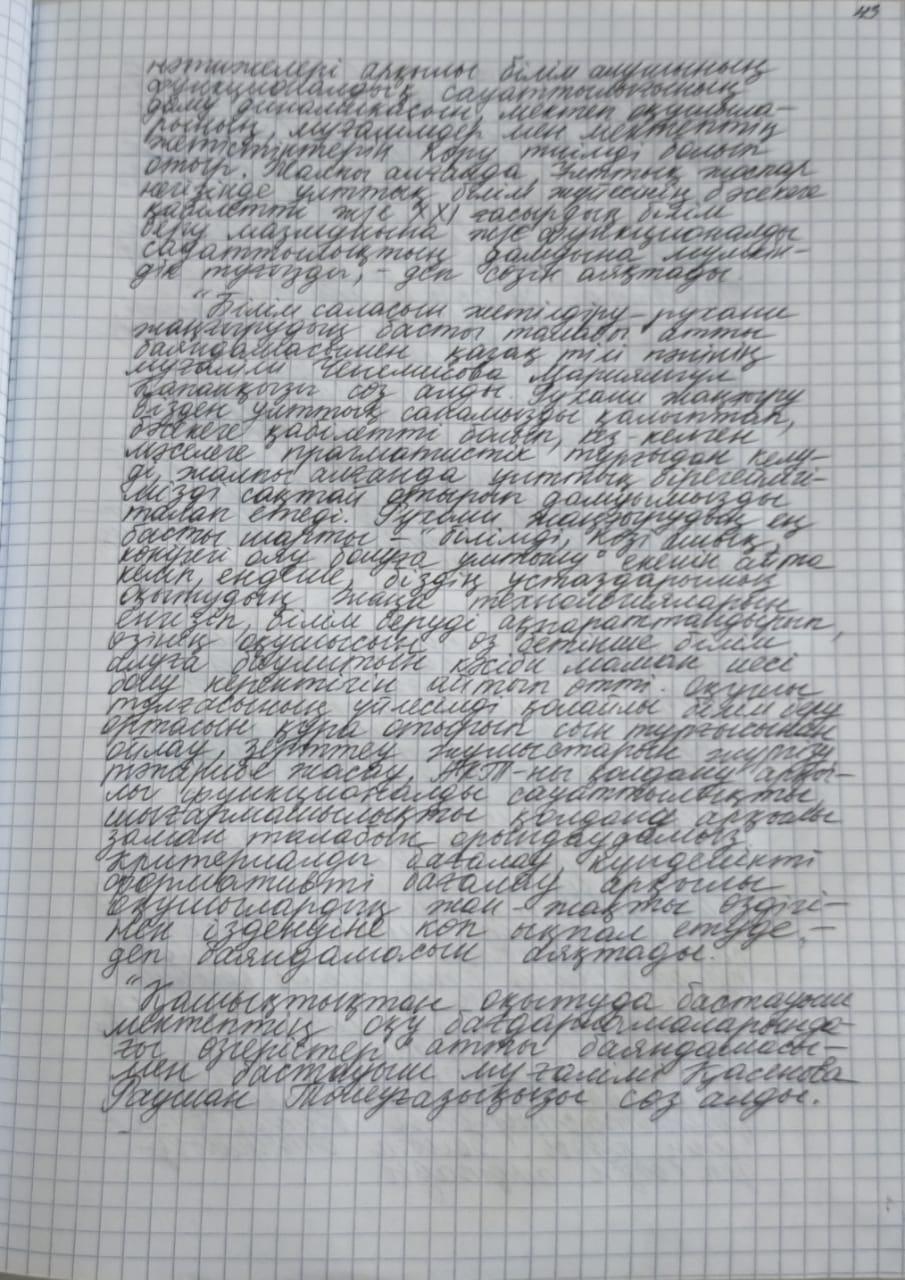 43
нәтижелері арқылы білім алушының
функционалдық сауаттылығының
даму динамикасын, мектеп оқушыла-
рының, мұғалімдер мен мектептің
жетістіктерін көру тиімді болып
отыр. Жалпы алғанда, Ұлттық жоспар
негізінде ұлттық білім жүйесінің бәсекеге
қабілетті және XXI ғасырдың білім
беру мазмұнына және функционалды
сауаттылықтың дамуына мүмкін-
дік туғызды, - деп сөзін аяқтады
"Білім саласын жетілдіру - рухани
жаңғырудың басты талабы" атты
баяндамасымен қазақ тілі пәнінің
мұғалімі Мариямгүл
сөз алды. Рухани жаңғыру
бізден ұлттық санамызды қалыптап,
бәсекеге қабілетті болып, кез-келген
мәселеге прагматистік тұрғыдан келу-
ді, жалпы алғанда ұлттық бірегейлігі-
мізді сақтай отырып дамуымызды
талап етеді. Рухани жаңғырудың ең
басты шарты - "білімді, көзі ашық,
көкірегі ояу болуға ұмтылу" екенін айта
келіп, ендеше, біздің ұстаздарымыз
оқытудың жаңа технологияларын
енгізеп, білім беруді ақпараттандырып,
өзінің оқушысын өз бетінше білім
алуға баулитын кәсіби маман иесі
болу керектігін айтып өтті. Оқушы
тұлғасының үйлесімді қолайлы білім беру
ортасын құра отырып сын тұрғысынан
ойлау, зерттеу жұмыстарын жүргізу
тәжірибе жасау, АКТ-ны қолдану арқы-
лы функционалды сауаттылықты
шығармашылықты қолдана арқылы
заман талабын орындаудамыз.
Критериалды бағалау, күнделікті
формативті бағалау арқылы
оқушылардың жан-жақты өздігі-
нен ізденуіне көп ықпал етуде, -
деп баяндамасын аяқтады.
"Қашықтықтан оқытуда бастауыш
мектептің оқу бағдарламаларында-
ғы өзгерістер" атты баяндамасы-
мен бастауыш мұғалімі Қасенова
Раушан Төлеуғазықызы сөз алды.